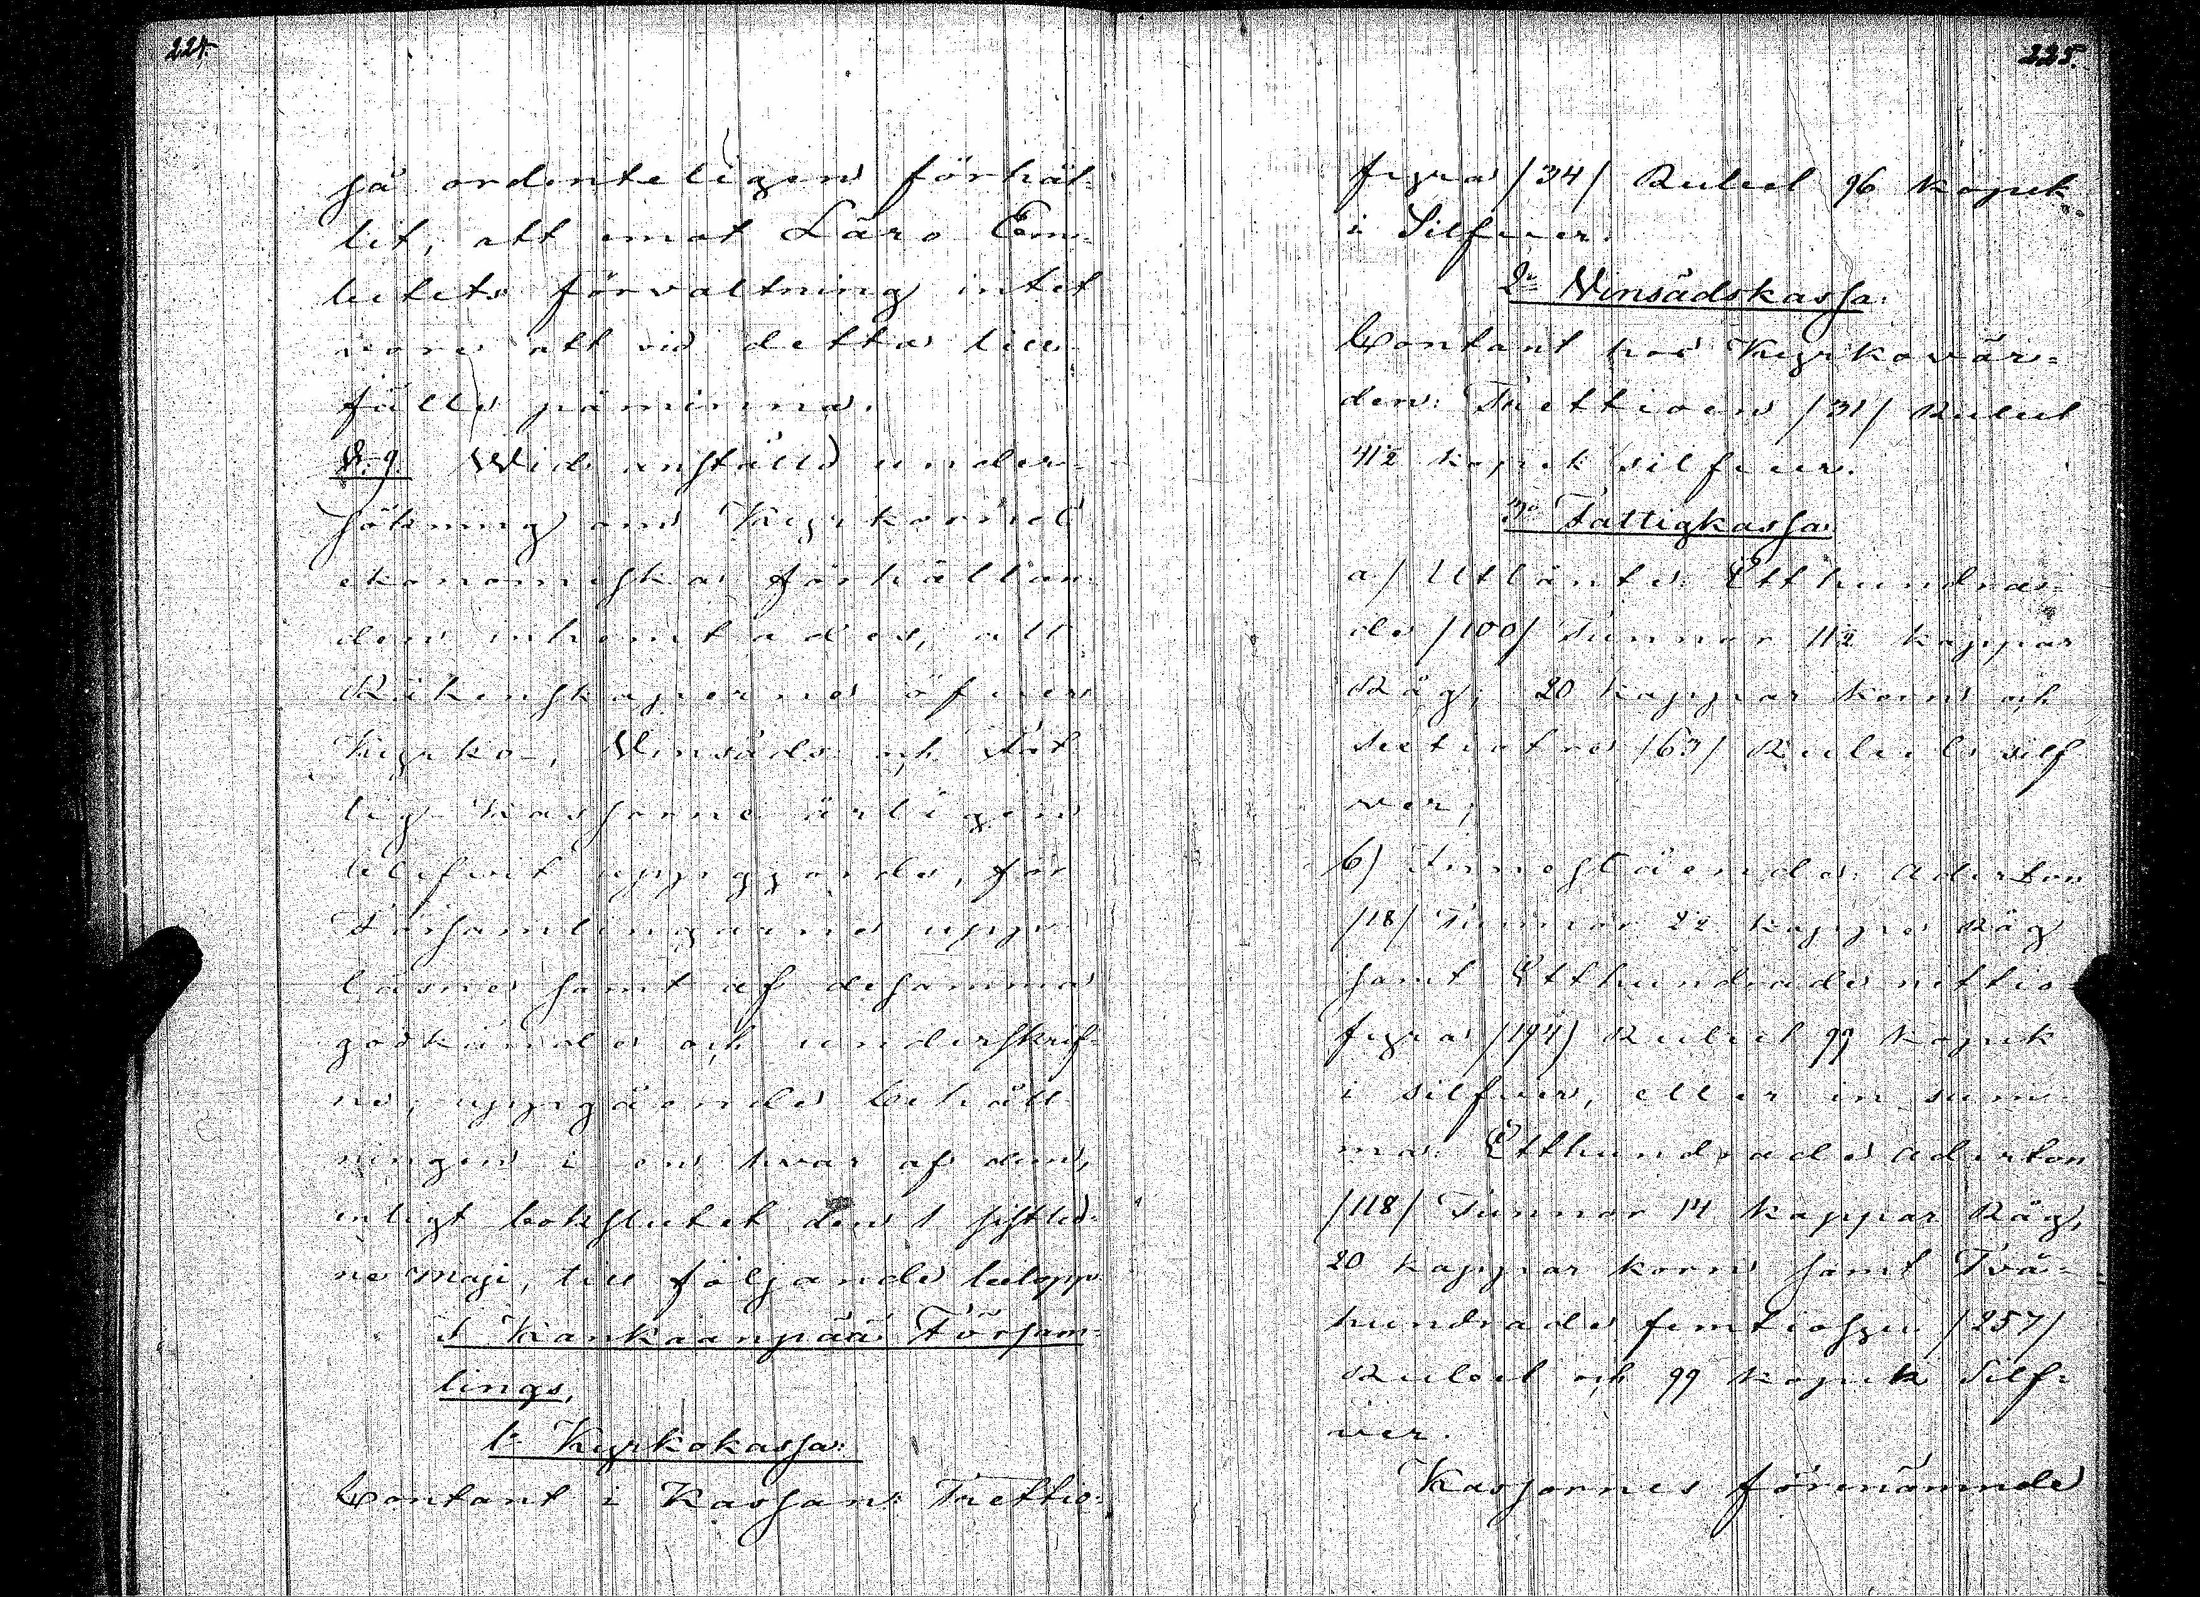 224.
så ordenteligen förhål-
lit, att emot Läro Em-
betets förvaltning intet
vore att vid detta till-
fälle påminna.
§. 9. Wid anställd under-
sökning om Kyrkornes
ekonomiska förhållan-
den inhemtades, att
Räkenskaperne öfver
Kyrko-, Vinsäds och Fat-
tig Kassorne årligen
blifvit uppgjorde, för
Församlingarne upp-
läsne samt af desamma
godkände och underskrif-
ne, uppgående behåll-
ningen i en hvar af dem,
enligt bokslutet den 1 sistled-
ne Maji, till följande belopp
I Kankaanpää Försam-
lings,
1o Kyrkokassa:
Contant i Kassan: Trettio-
225.
fyra /34/ Rubel 96 kopek
i Silfver.
2o Vinsädskassa:
Contant hos Kyrkovär-
den: Trettioen /31/ Rubel
41½ kopek silfver.
3o Fattigkassa:
a/ Utlånte: Etthundra-
de /100/ Tunnor 11½ kappar
Råg, 20 kappar korn och
Sextiotre /63/ Rubel silf
ver;
b) Innestående: Aderton
/18/ Tunnor 22 kappe Råg
samt Etthundrade nittio-
fyra /194/ Rubel 99 kopek
i silfver, eller in sum-
ma: Etthundrade aderton
/118/ Tunnor 14 kappar Råg,
20 kappar korn samt Två-
hundrade femtiosju /257/
Rubel och 99 kopek Silf-
ver.
Kassornes förenämnde